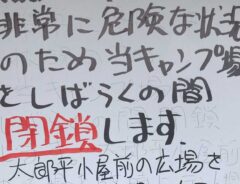 非常に危険な状況
のため当キャンプ場
をしばらくの間
閉鎖します。
太郎平小屋前の広場を